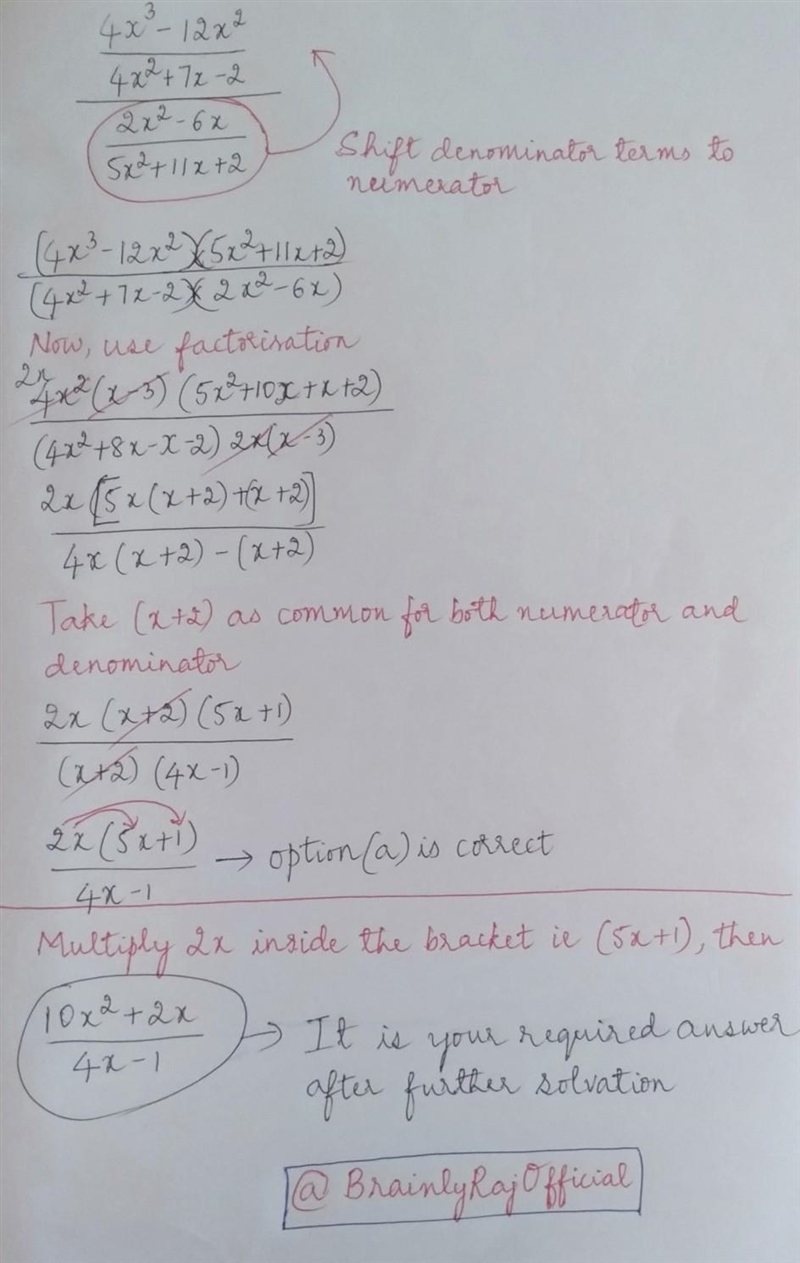 4x³ - 12x²
4x² + 7x - 2
2x² - 6x
5x² + 11x + 2
Shift denominator terms to
numerator
(4x³ - 12x²)(5x² + 11x + 2)
(4x² + 7x - 2)(2x² - 6x)
Now, use factorisation
2x
4x² (x - 3) (5x² + 10x + x + 2)
(4x² + 8x - x - 2) 2x (x - 3)
2x [5x (x + 2) + (x + 2)]
4x (x + 2) - (x + 2)
Take (x+2) as common for both numerator and
denominator
2x (x + 2) (5x + 1)
(x + 2) (4x - 1)
2x (5x + 1)
4x - 1
→ option (a) is correct
Multiply 2x inside the bracket ie (5x+1), then
10x² + 2x
4x - 1
→ It is your required answer
after further solvation
@ BrainlyRajOfficial